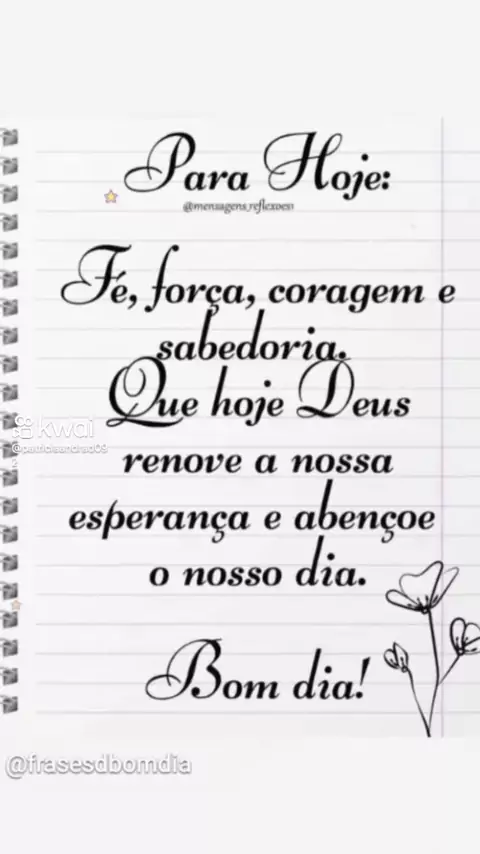 Para Hoje:
@mensagens_reflexoes1
Fé, força, coragem e
sabedoria.
Que hoje Deus
kwai
renove a nossa
esperança e abençoe
o nosso dia.
Bom dia!
@frasesdbomdia